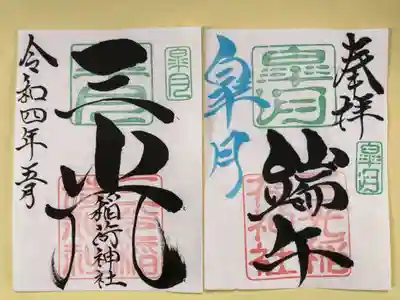 奉拝
皐月
皐月
端午
皐月
皐月
三光
稲荷神社
令和四年五月